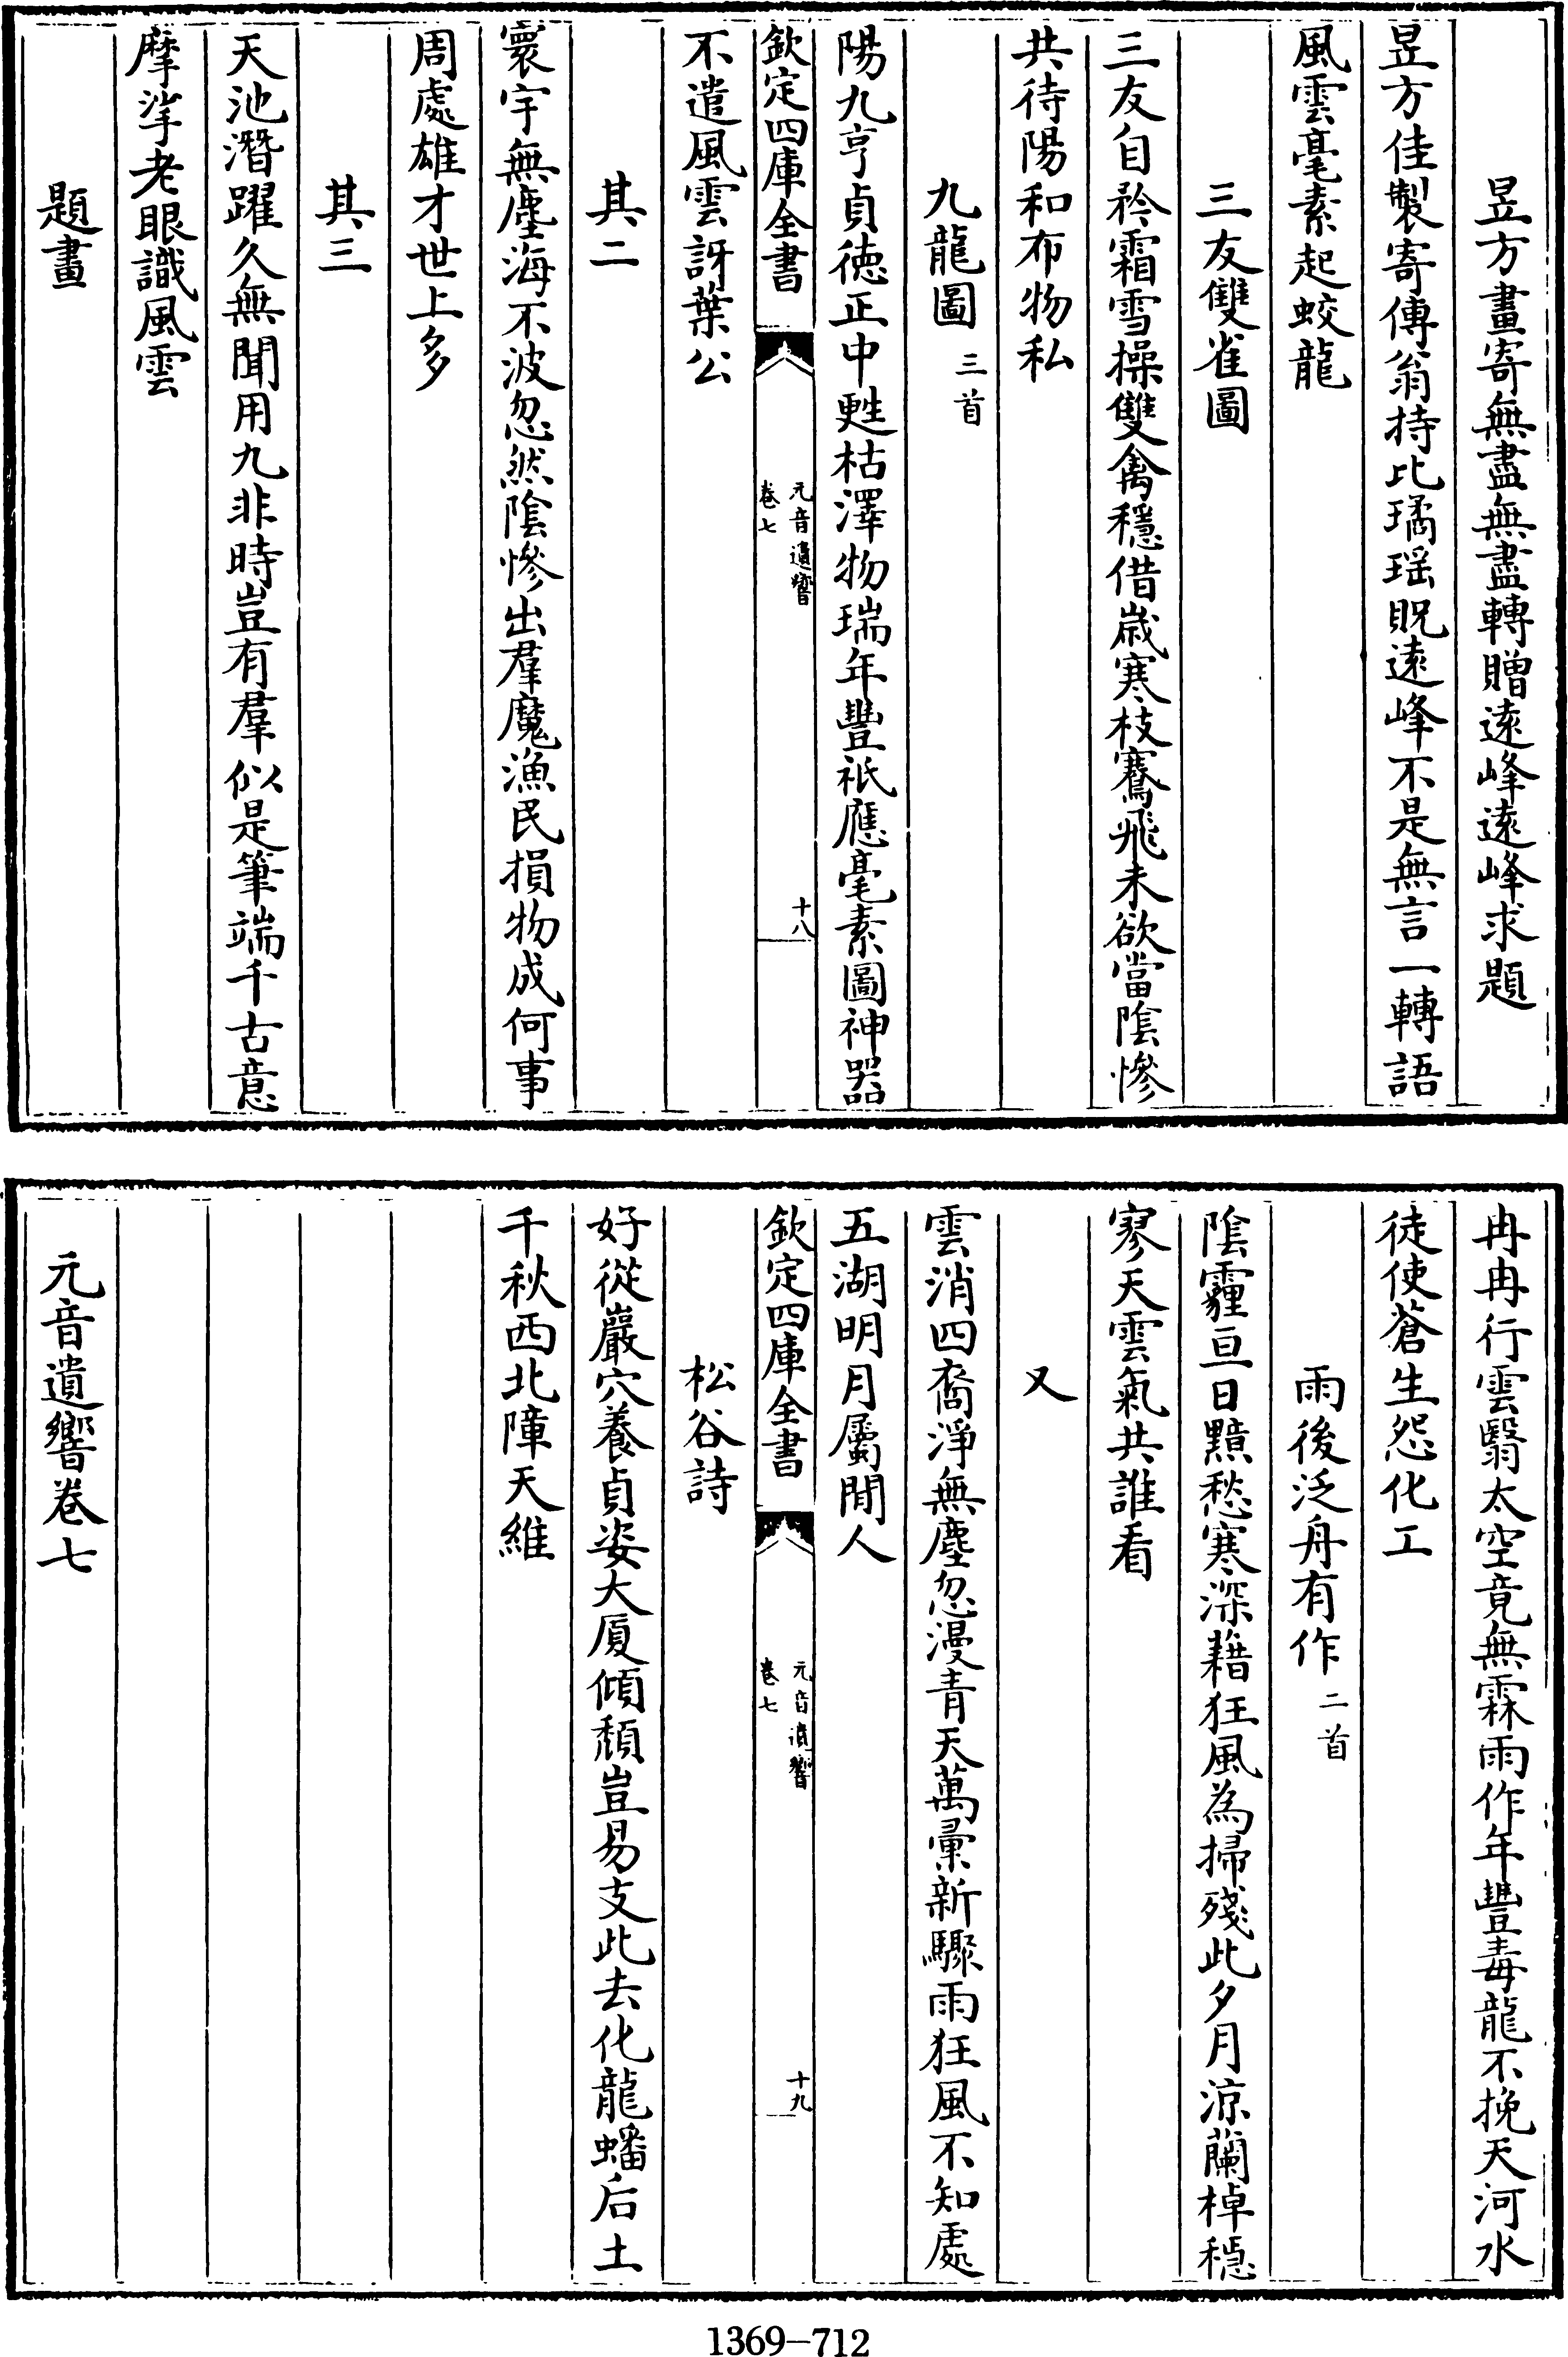 昱方畫寄無盡無盡轉贈遠峰遠峰求題
昱方佳製寄傳翁持比璚瑶貺遠峰不是無言一轉語
風雲毫素起蛟龍
三友雙雀圖
三友自矜霜雪操雙禽穩借歲寒枝騫飛未欲當陰慘
共待陽和布物私
九龍圖 三首
陽九亨貞徳正中甦枯澤物瑞年豐祇應毫素圖神器
欽定四庫全書
元音遺響
卷七
十八
不遣風雲訝葉公
其二
寰宇無塵海不波忽然陰慘出羣魔漁民損物成何事
周處雄才世上多
其三
天池潛躍久無聞用九非時豈有羣似是筆端千古意
摩挲老眼識風雲
題畫
冉冉行雲翳太空竟無霖雨作年豐毒龍不挽天河水
徒使蒼生怨化工
雨後泛舟有作 二首
陰霾亘日黯愁寒深藉狂風為掃殘此夕月涼蘭棹穏
寥天雲氣共誰看
又
雲消四裔淨無塵忽漫青天萬彚新驟雨狂風不知處
五湖明月屬閒人
欽定四庫全書
元音遺響
卷七
十九
松谷詩
好從巖穴養貞姿大厦傾頽豈易支此去化龍蟠后土
千秋西北障天維
元音遺響卷七
1369-712